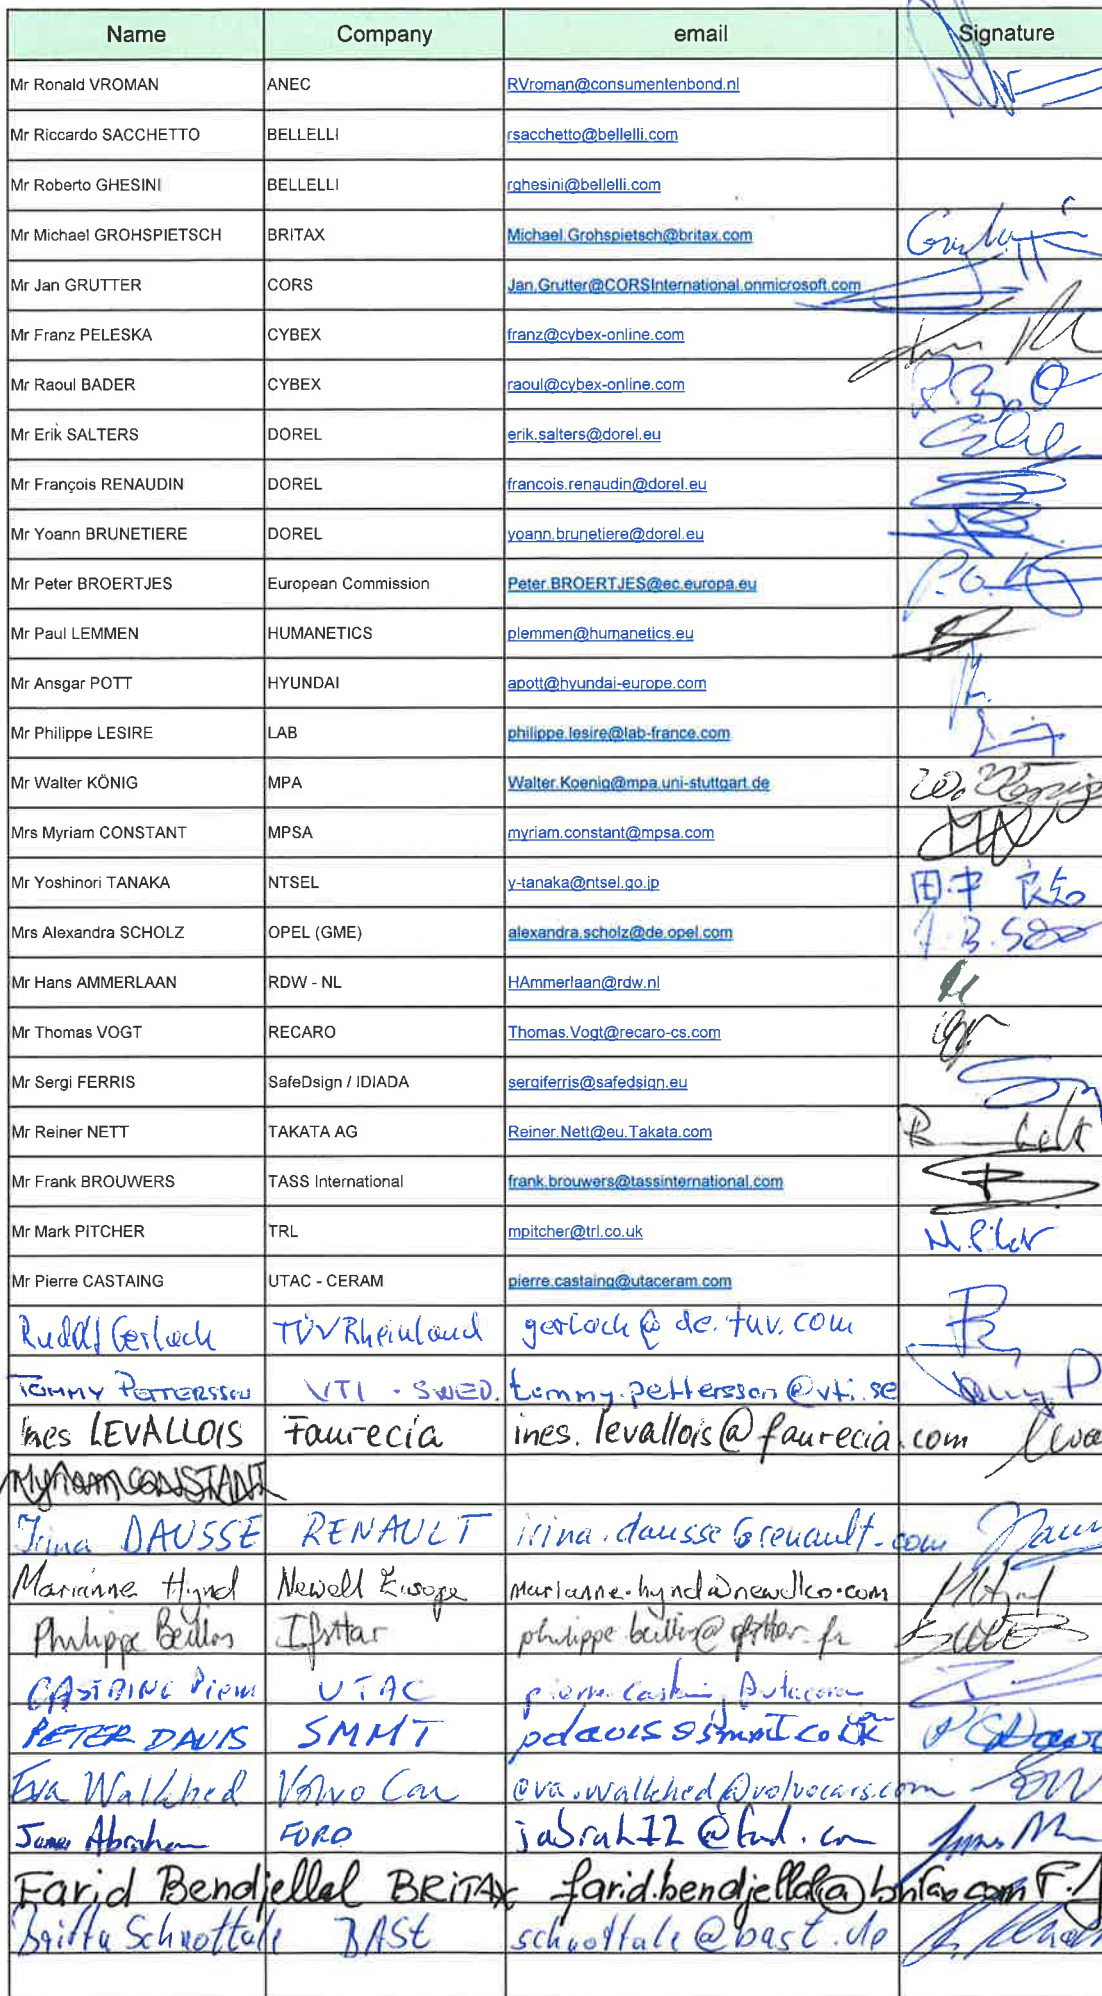 Name Company email Signature
Mr Ronald VROMAN ANEC RVroman@consumentenbond.nl
Mr Riccardo SACCHETTO BELLELLI rsacchetto@bellelli.com
Mr Roberto GHESINI BELLELLI rghesini@bellelli.com
Mr Michael GROHSPIETSCH BRITAX Michael.Grohspietsch@britax.com
Mr Jan GRUTTER CORS Jan.Grutter@CORSInternational.onmicrosoft.com
Mr Franz PELESKA CYBEX franz@cybex-online.com
Mr Raoul BADER CYBEX raoul@cybex-online.com
Mr Erik SALTERS DOREL erik.salters@dorel.eu
Mr François RENAUDIN DOREL francois.renaudin@dorel.eu
Mr Yoann BRUNETIERE DOREL yoann.brunetiere@dorel.eu
Mr Peter BROERTJES European Commission Peter.BROERTJES@ec.europa.eu
Mr Paul LEMMEN HUMANETICS plemmen@humanetics.eu
Mr Ansgar POTT HYUNDAI apott@hyundai-europe.com
Mr Philippe LESIRE LAB philippe.lesire@lab-france.com
Mr Walter KÖNIG MPA Walter.Koenig@mpa.uni-stuttgart.de
Mrs Myriam CONSTANT MPSA myriam.constant@mpsa.com
Mr Yoshinori TANAKA NTSEL y-tanaka@ntsel.go.jp 田中
Mrs Alexandra SCHOLZ OPEL (GME) alexandra.scholz@de.opel.com
Mr Hans AMMERLAAN RDW - NL HAmmerlaan@rdw.nl
Mr Thomas VOGT RECARO Thomas.Vogt@recaro-cs.com
Mr Sergi FERRIS SafeDsign / IDIADA sergiferris@safedsign.eu
Mr Reiner NETT TAKATA AG Reiner.Nett@eu.Takata.com
Mr Frank BROUWERS TASS International frank.brouwers@tassinternational.com
Mr Mark PITCHER TRL mpitcher@trl.co.uk
Mr Pierre CASTAING UTAC - CERAM pierre.castaing@utaceram.com
Rudolf Gerlach TÜV Rheinland gerlach@de.tuv.com
TOMMY PETTERSSON VTI - SWED. tommy.pettersson@vti.se
Ines LEVALLOIS Faurecia ines.levallois@faurecia.com
Myriam CONSTANT
Irina DAUSSE RENAULT irina.dausse@renault.com
Marianne Hynd Newell Europe marianne.hynd@newellco.com
Philippe Beillas Ifsttar philippe.beillas@ifsttar.fr
CASTAING Pierre UTAC
PETER DAVIS SMMT pdavis@smmt.co.uk
Eva Walkhed Volvo Car eva.walkhed@volvocars.com
James Abraham FORD jabrah12@ford.com
Farid Bendjellal BRITAX farid.bendjellal@britax.com
Britta Schnottale BASt schnottale@bast.de